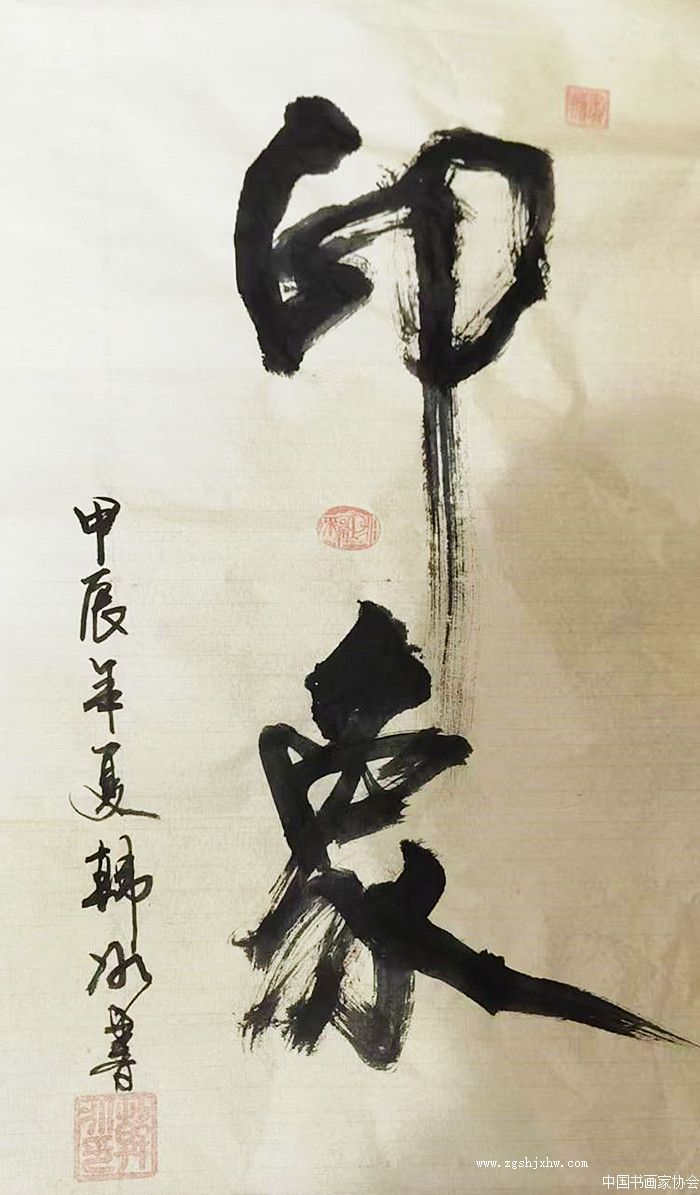 印象
甲辰年夏韩冰書
www.zgshjxhw.com
中国书画家协会